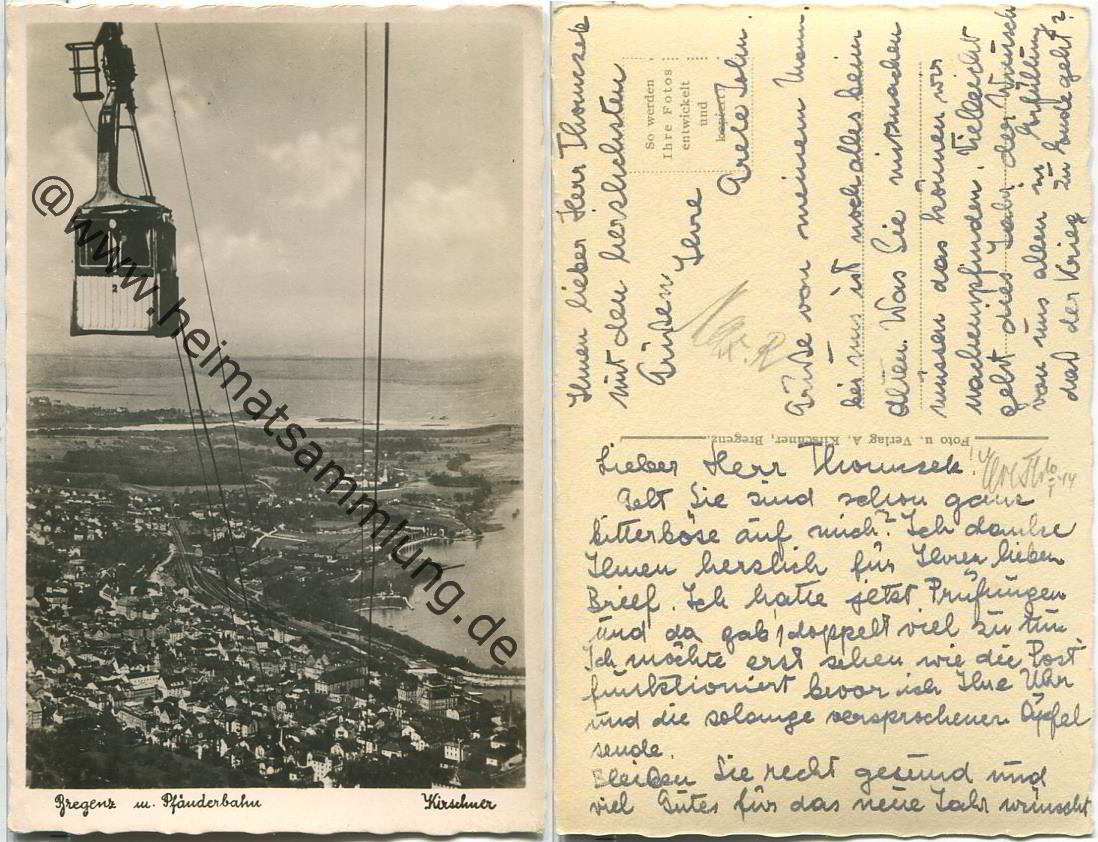 2
@www.heimatsammlung.de
Bregenz m. Pfänderbahn
Kirschner
Lieber Herr Thomsek!
Jetzt Sie sind schon ganz
bitterböse auf mich? Ich danke
Ihnen herzlich für Ihren lieben
Brief. Ich hatte jetzt Prüfungen
und da gab's doppelt viel zu tun
Ich möchte erst sehen wie die Post
funktioniert bevor ich Ihre Uhr
und die solange versprochenen Äpfel
sende.
Bleiben Sie recht gesund und
viel Gutes für das neue Jahr wünscht
Ihnen lieber Herr Thomsek
mit den herzlichsten
Grüßen Ihre
Grete
Grüße von meinem Mann.
bei uns ist noch alles beim
alten. Was Sie mitmachen
müssen das können wir
nachempfinden. Vielleicht
geht dies Jahr der Wunsch
von uns allen in Erfüllung
daß der Krieg zu Ende geht?
So werden
Ihre Fotos
entwickelt
und
kopiert
Foto u. Verlag A. Kirschner, Bregenz.